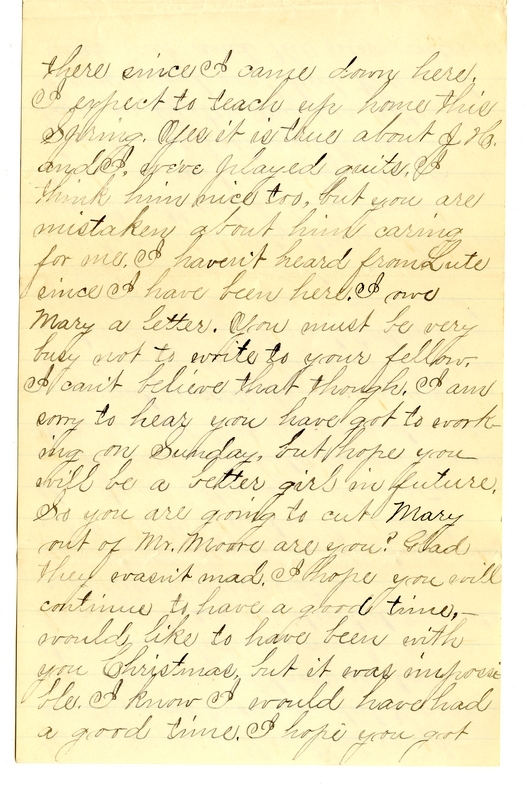 there since I came down here.
I expect to teach up home this
Spring. Yes it is true about J. H.
and I. we've played quits. I
think him nice too, but you are
mistaken about him caring
for me. I haven't heard from Lute
since I have been here. I owe
Mary a letter. You must be very
busy not to write to your fellow.
I can't believe that though. I am
sorry to hear you have got to work-
ing on Sunday, but hope you
will be a better girl in future.
So you are going to cut Mary
out of Mr. Moore are you? Glad
they wasn't mad. I hope you will
continue to have a good time,-
would like to have been with
you Christmas, but it was impossi
ble. I know I would have had
a good time. I hope you got